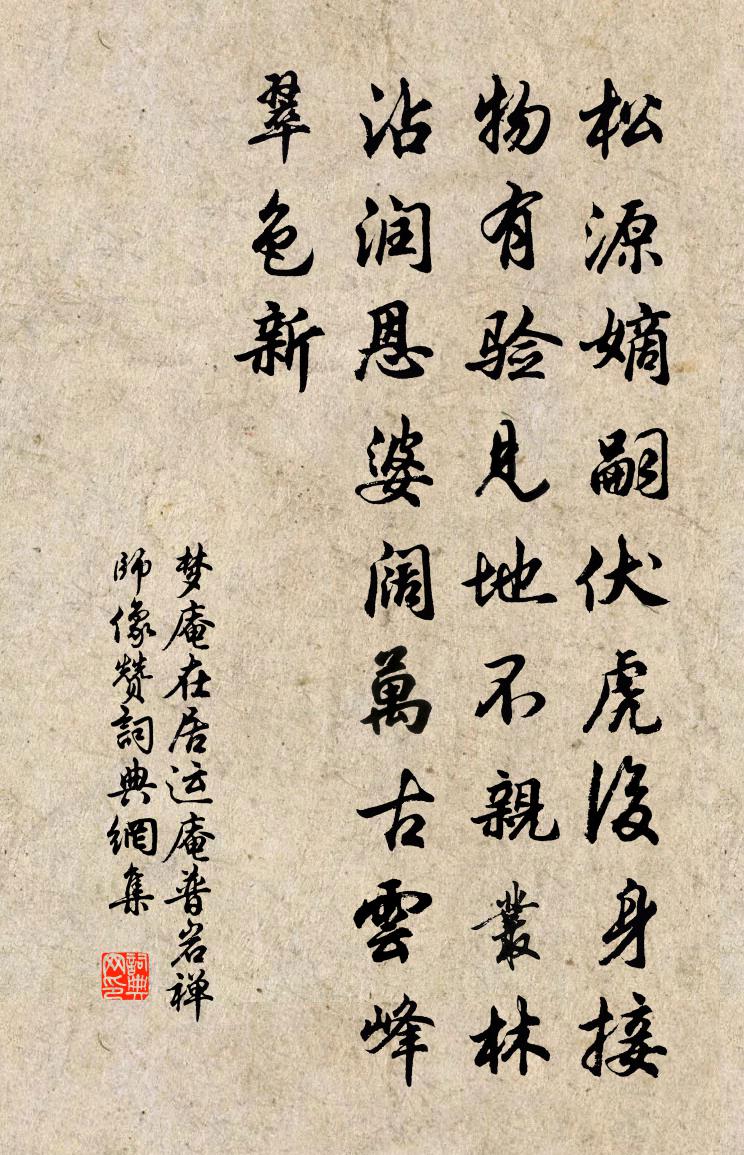 松源嫡嗣伏虎後身接
物有验見地不親叢林
沾润恩婆阔萬古雲峰
翠色新
梦庵在居运庵普岩禅
師像赞詞典網集
詞典网印